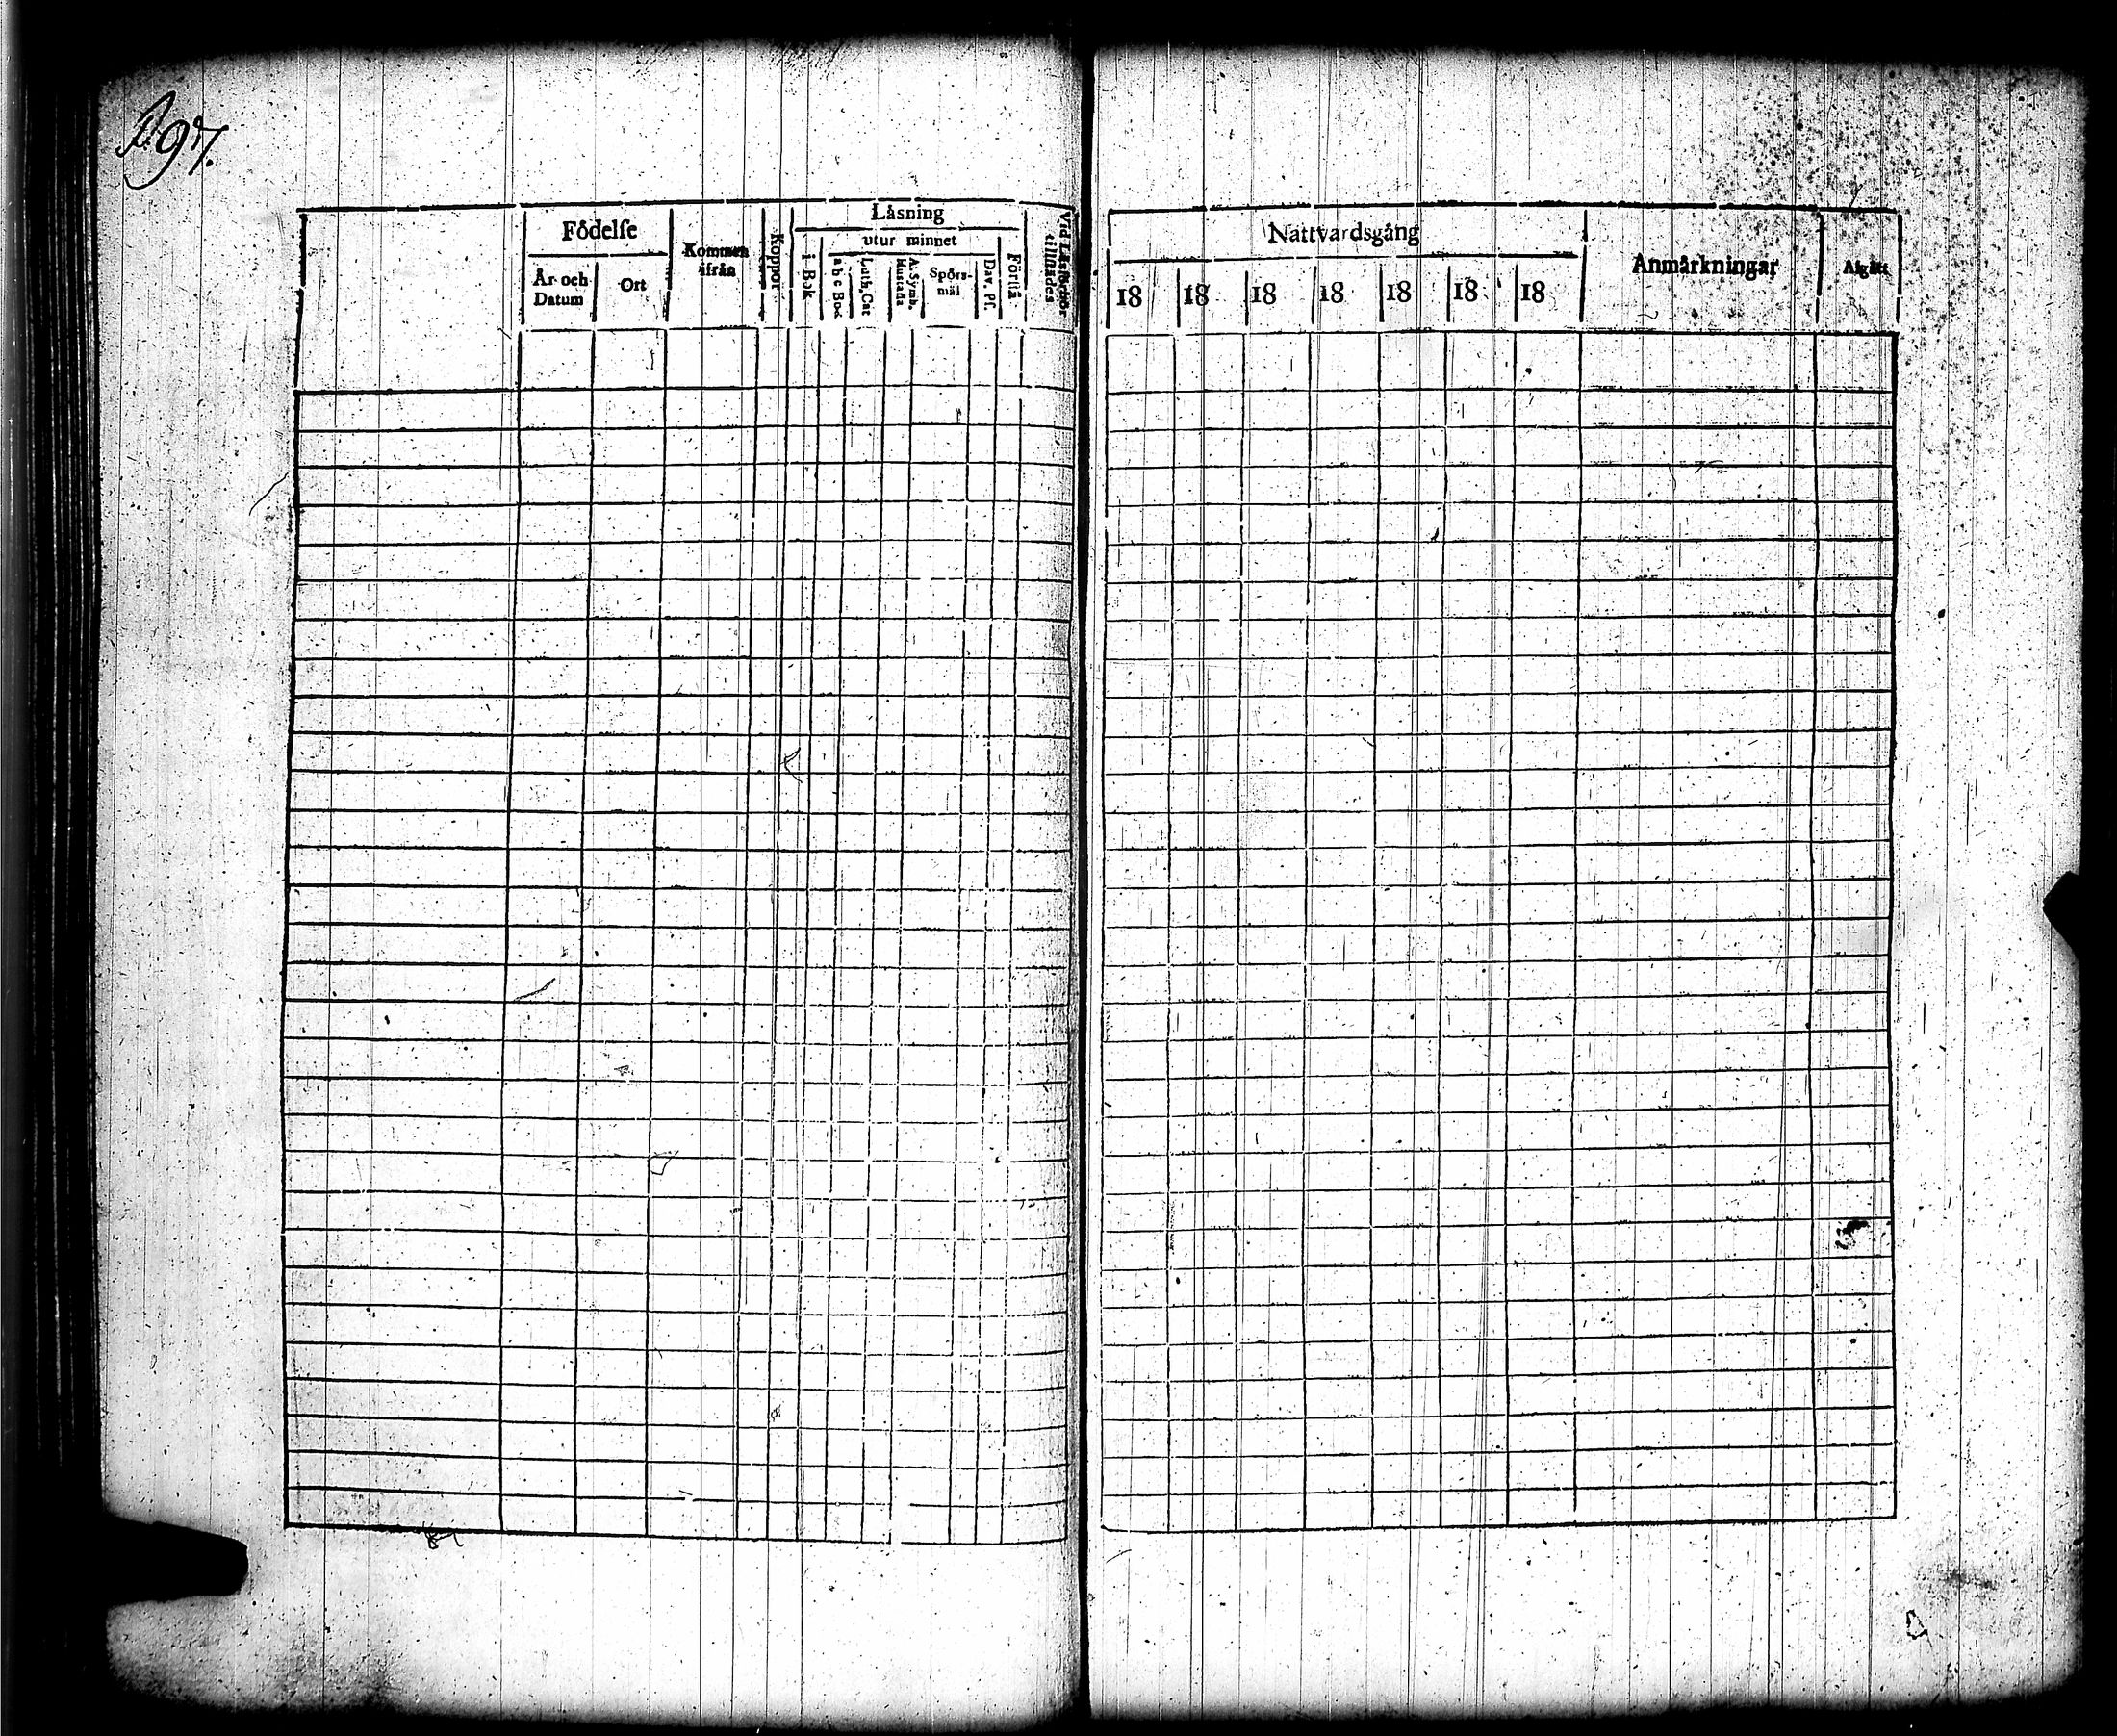 P. 97.
Födelse
År och Datum
Ort
Kommen ifrån
Koppor
Läsning
i Bok
utur minnet
a b c Bok
Luth. Cat
A. Symb. Hustafla
Spörsmål
Dav. Ps.
Förstå
Vid Läsförhör tillstädes
Nattvardsgång
18 18 18 18 18 18 18
Anmärkningar
Afgått